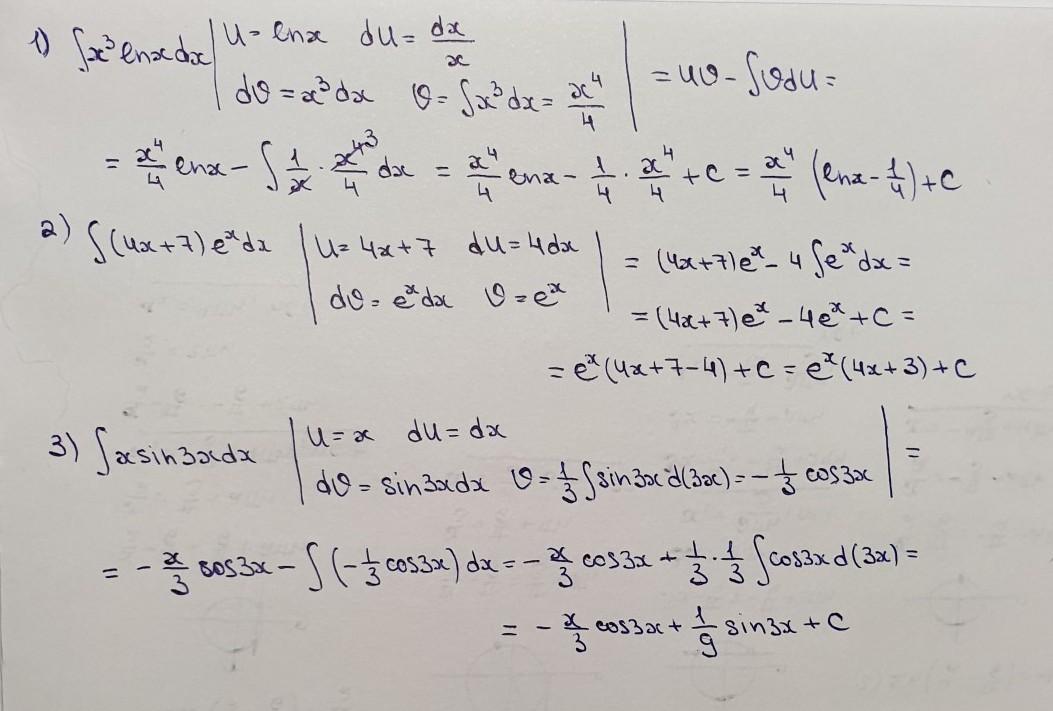 1) ∫x³ lnx dx | u = lnx du = dx/x
dv = x³dx v = ∫x³dx = x⁴/4 | = uv - ∫vdu =
= x⁴/4 lnx - ∫ 1/x · x⁴³/4 dx = x⁴/4 lnx - 1/4 · x⁴/4 + c = x⁴/4 (lnx - 1/4) + c
2) ∫(4x+7)eˣdx | u = 4x+7 du = 4dx | = (4x+7)eˣ - 4∫eˣdx =
dv = eˣdx v = eˣ
= (4x+7)eˣ - 4eˣ + c =
= eˣ(4x+7-4) + c = eˣ(4x+3) + c
3) ∫x sin3x dx | u = x du = dx
dv = sin3xdx v = 1/3 ∫sin3x d(3x) = - 1/3 cos3x | =
= - x/3 cos3x - ∫(- 1/3 cos3x) dx = - x/3 cos3x + 1/3 · 1/3 ∫cos3x d(3x) =
= - x/3 cos3x + 1/9 sin3x + c